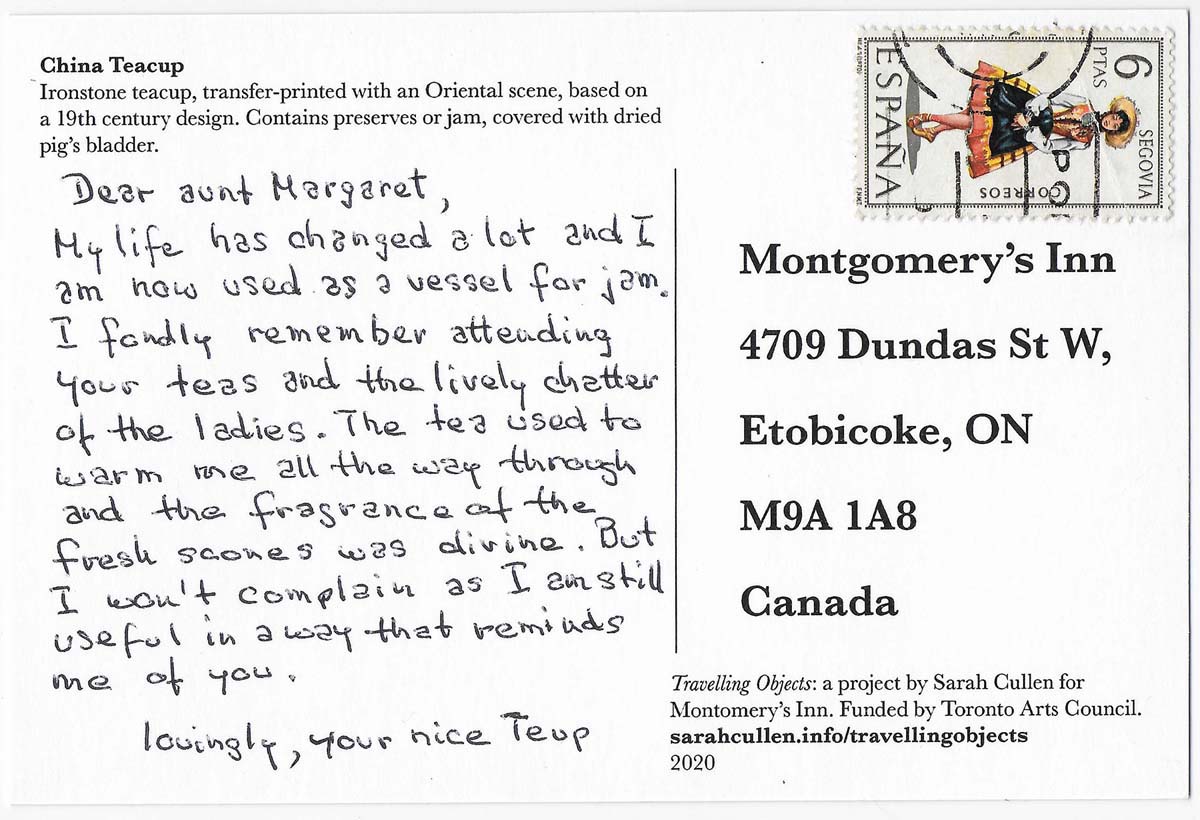 China Teacup
Ironstone teacup, transfer-printed with an Oriental scene, based on
a 19th century design. Contains preserves or jam, covered with dried
pig's bladder.
Dear aunt Margaret,
My life has changed a lot and I
am now used as a vessel for jam.
I fondly remember attending
your teas and the lively chatter
of the ladies. The tea used to
warm me all the way through
and the fragrance of the
fresh scones was divine. But
I won't complain as I am still
useful in a way that reminds
me of you.
lovingly, your nice Teup
6 PTAS
SEGOVIA
CORREOS
ESPAÑA
Montgomery's Inn
4709 Dundas St W,
Etobicoke, ON
M9A 1A8
Canada
Travelling Objects: a project by Sarah Cullen for
Montomery's Inn. Funded by Toronto Arts Council.
sarahcullen.info/travellingobjects
2020